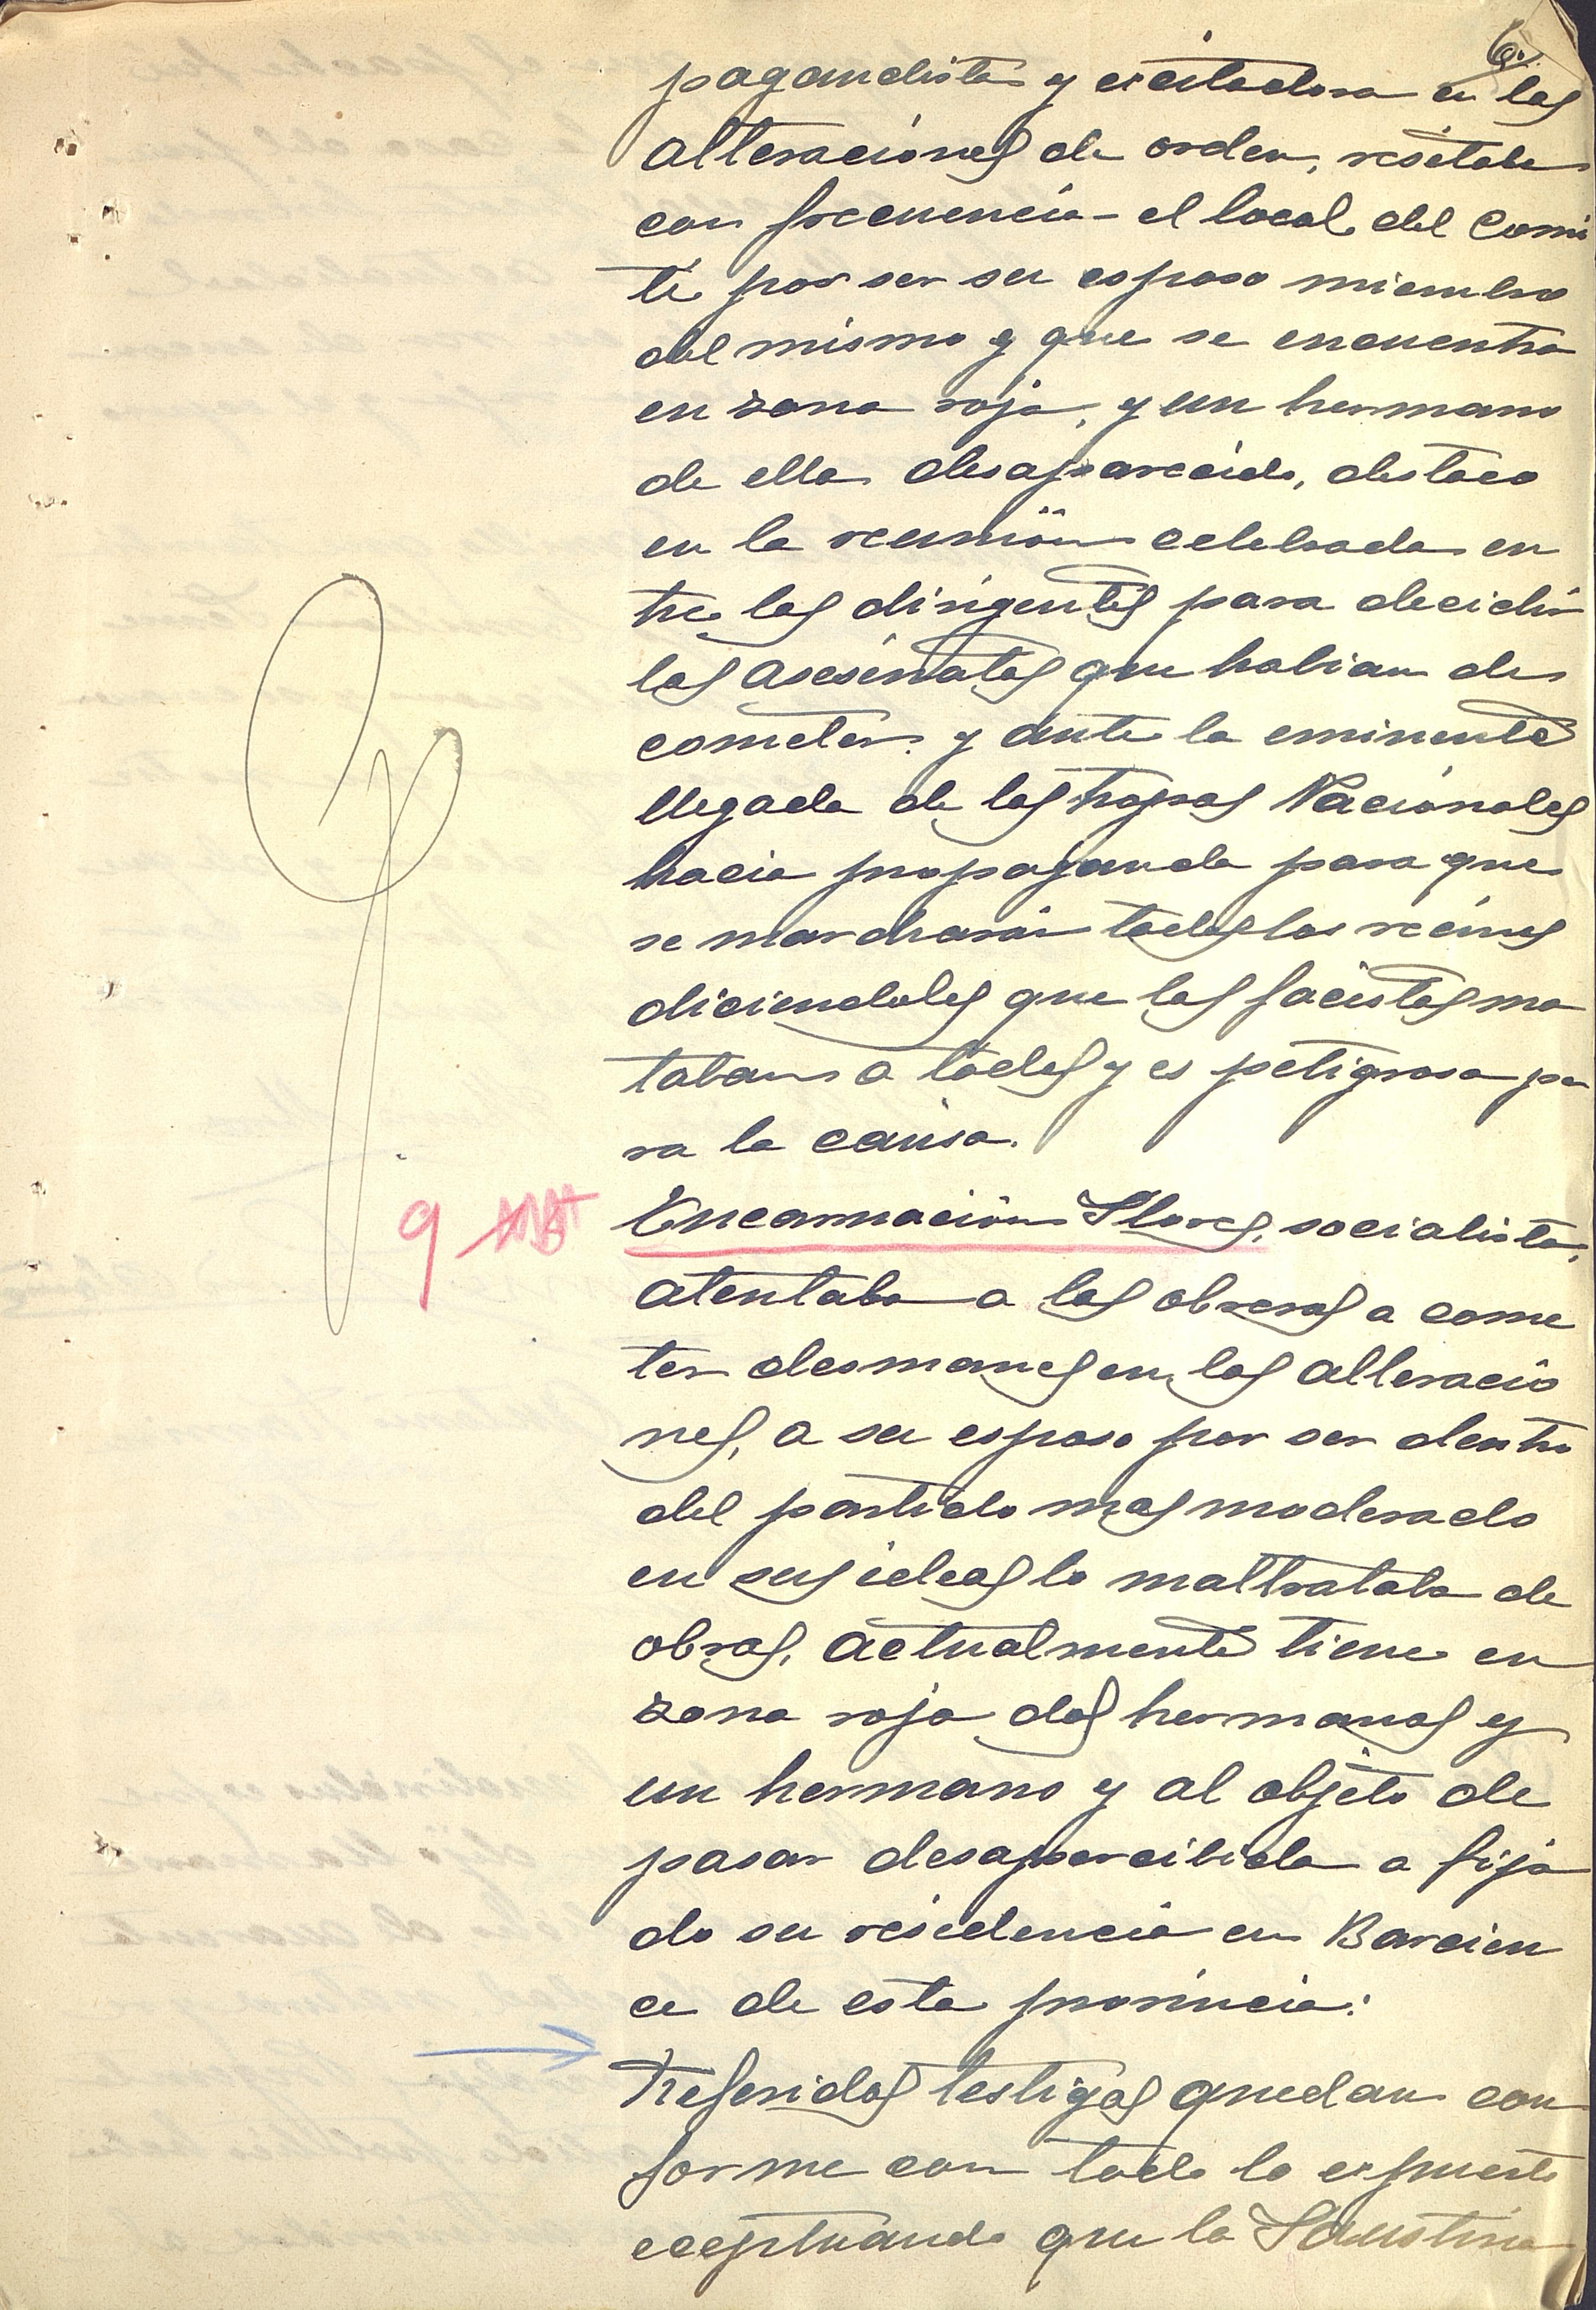 6.
pagandista y exitadora en las
alteraciones de orden, visitaba
con frecuencia el local del Comi
te por ser su esposo miembro
del mismo y que se encuentra
en zona roja, y un hermano
de ella desaparecido, destaco
en la reunión celebrada en
tre los dirigentes para decidir
los asesinatos que habian de
cometer. y ante la eminente
llegada de las tropas Nacionales
hacia propaganda para que
se marcharan todos los vecinos
diciendoles que los facistas ma
taban a todos y es peligrosa pa
ra la causa.
9
Encarnación Flores, socialista,
atentaba a los obreros a come
ter desmanes en las alteracio
nes, a su esposo por ser dentro
del partido mas moderado
en sus ideas lo maltrataba de
obras, actualmente tiene en
zona roja dos hermanos y
un hermano y al objeto de
pasar desapercibida a fija
do su residencia en Barcien
ce de esta provincia:
Referidos testigos quedan con
forme con todo lo expuesto
eceptuando que la Faustina